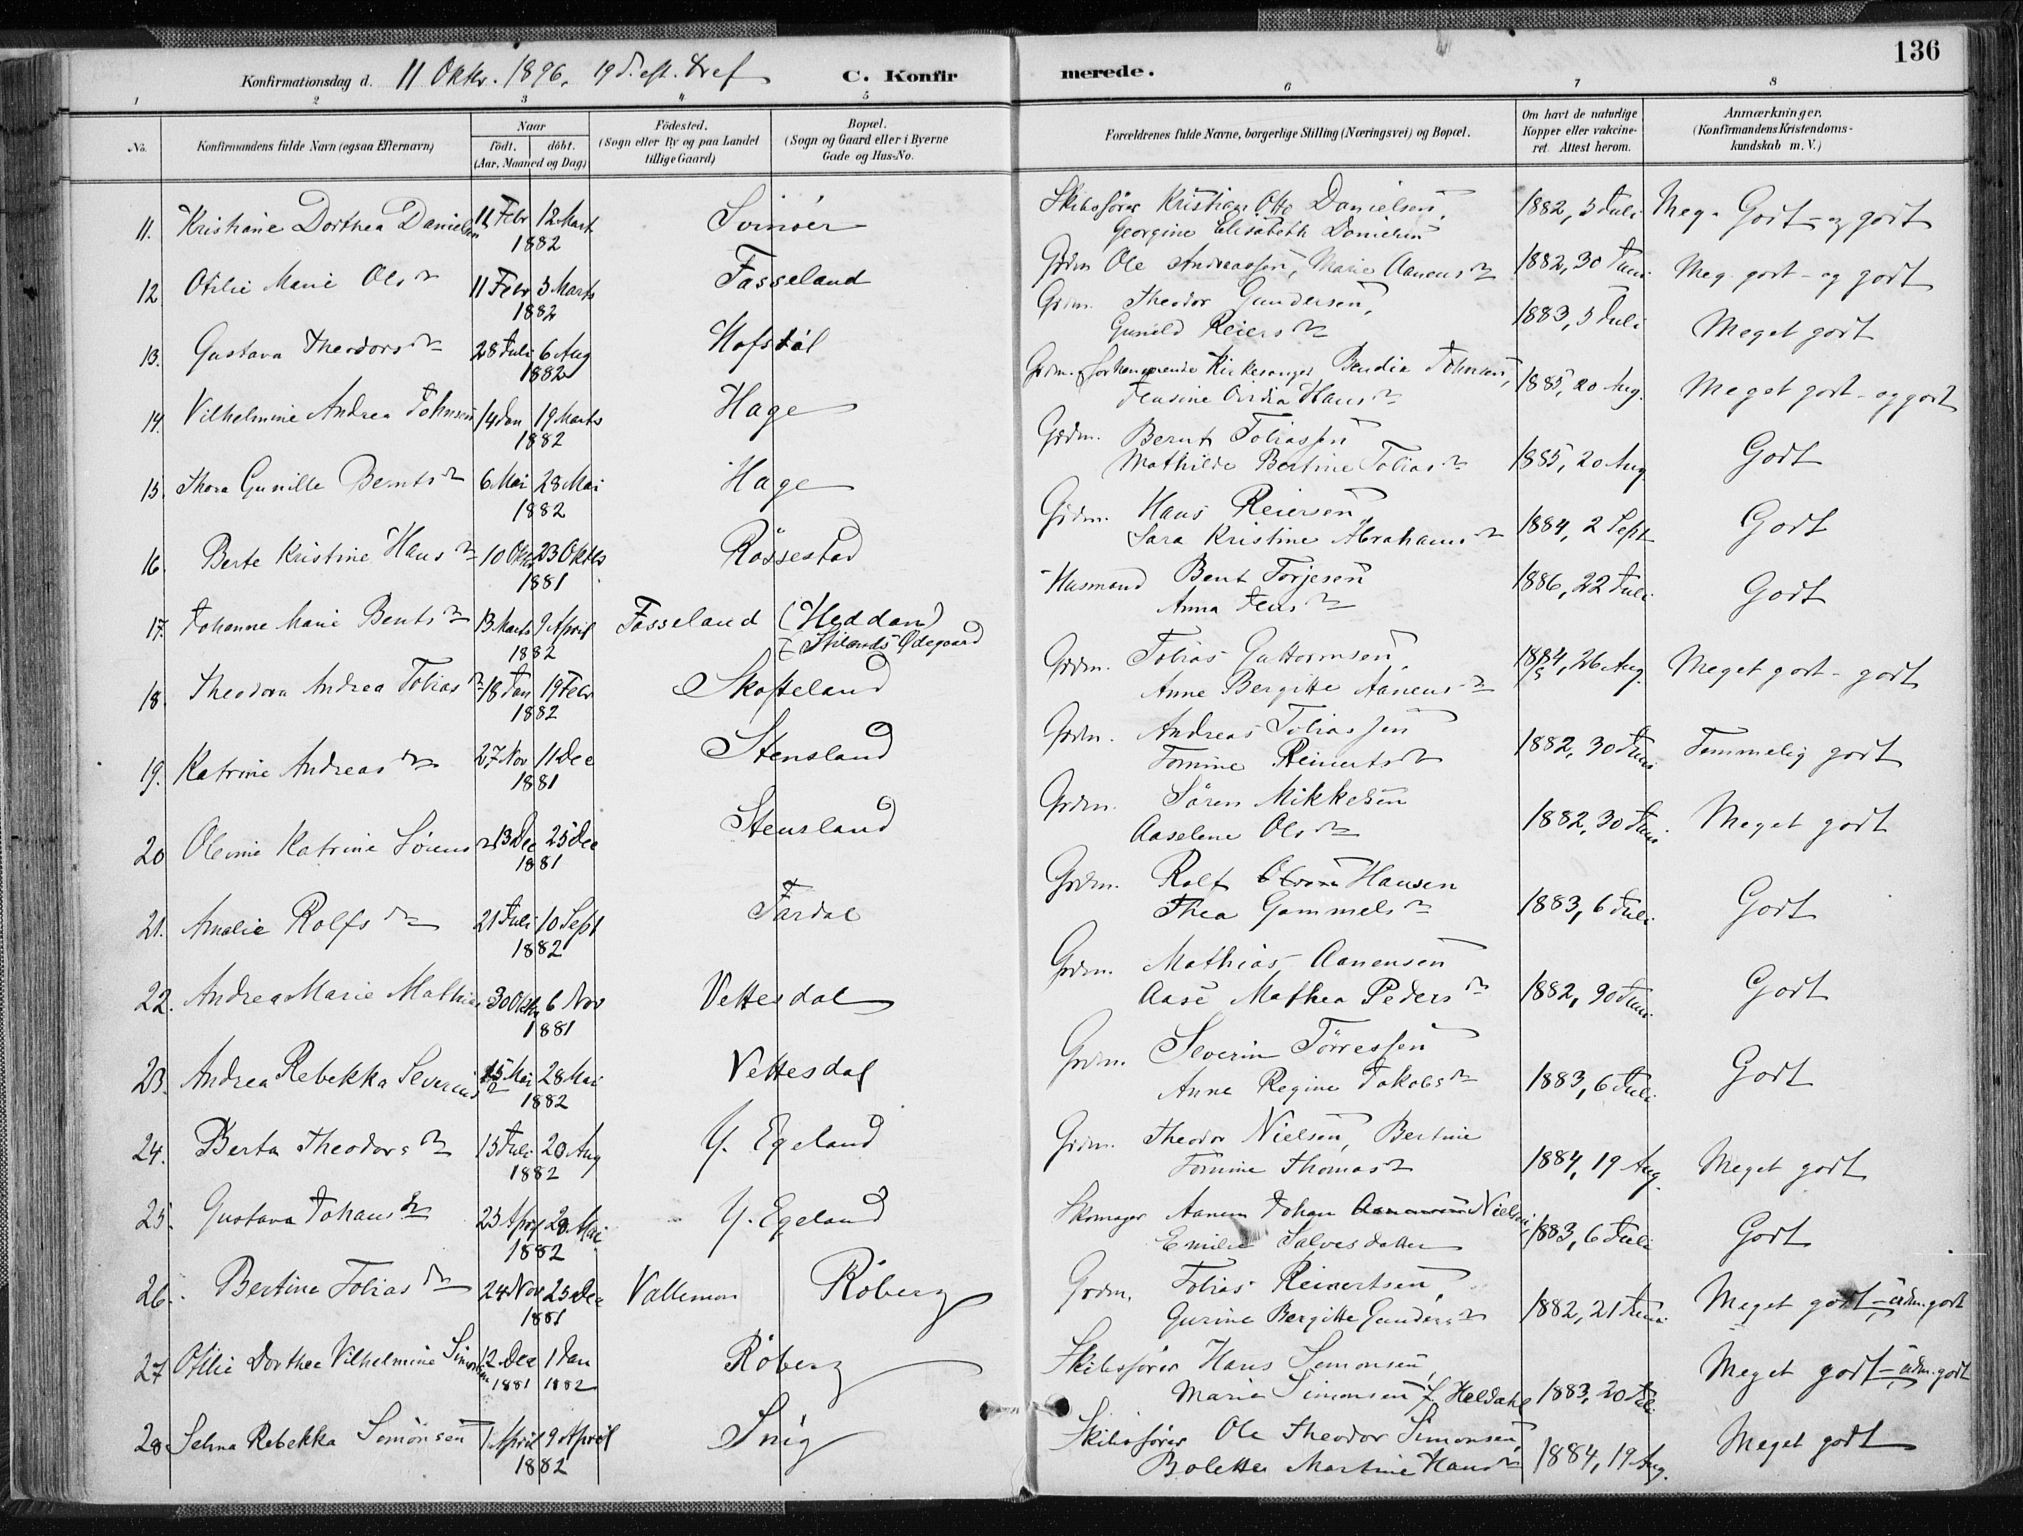 136
Konfirmationsdag d. 11 Oktr. 1896, 19 S. eft. Tref C. Konfirmerede.
1 2 3 4 5 6 7 8
No. Konfirmandens fulde Navn (ogsaa Efternavn) Naar födt. döbt. (Aar, Maaned og Dag) Födested. (Sogn eller By og paa Landet tillige Gaard) Bopæl. (Sogn og Gaard eller i Byerne Gade og Hus-No. Forældrenes fulde Navne, borgerlige Stilling (Næringsvei) og Bopæl. Om havt de naturlige Kopper eller vakcineret. Attest herom. Anmærkninger. (Konfirmandens Kristendomskundskab m. V.)
11. Kristiane Dorthea Danielsen 11 Febr 12 Marts 1882 Svinöer Skibsförer Kristian Otto Danielsen, Georgine Elisabeth Danielsen 1882, 3 Juli Meg. Godt - og godt
12. Otilie Marie Olsdr 11 Febr 5 Marts 1882 Fasseland Grdm Ole Andreassen, Marie Aanensdr 1882, 30 Juni Meg. godt - og godt
13. Gustava Theodorsdr 28 Juli 6 Aug 1882 Hofstöl Grdm. Theodor Gundersen, Gunild Reiersdr 1883, 5 Juli Meget godt
14. Vilhelmine Andrea Johnsen 14 Jan 19 Marts 1882 Hage Grdm. forhenværende Kirkesanger Bendix Johnsen, Hansdr 1885, 20 Aug. Meget godt - og godt
15. Thora Gunille Berntsdr 6 Mai 28 Mai 1882 Hage Grdm. Bernt Tobiassen Mathilde Bertine Tobiasdr 1885, 20 Aug Godt
16. Berte Kristine Hansdr 10 Oktb 23 Oktbr 1881 Rössestad Grdm. Hans Reiersen Sara Kristine Abrahamsdr 1884, 2 Sept Godt
17. Johanne Marie Bentsdr 13 Marts 9 April 1882 Fasseland (Heddan) (Stilands Ødegaard Husmand Bent Torjesen Anna Jensdr 1886, 22 Juli Godt
18. Theodora Andrea Tobiasdr 18 Jan 19 Febr 1882 Skofteland Grdm. Tobias Guttormsen, Anne Bergitte Aanensdr 1884, 26 Aug. Meget godt - godt
19. Katrine Andreasdr 27 Nov 11 Dec 1881 Stensland Grdm. Andreas Tobiassen Tomine Reinertsdr 1882, 30 Juni Temmelig godt
20 Olevine Katrine Sörensdr 13 Dec 25 Dec 1881 Stensland Grdm. Sören Mikkelsen Aaselene Olsdr 1882, 30 Juni Meget godt
21. Amalie Rolfsdr 21 Juli 10 Sept 1882 Jardal Grdm. Rolf Hansen Thea Gammelsdr 1883, 6 Juli Godt
22. Andrea Marie Mathias 30 Oktb 6 Nov 1881 Vettesdal Grdm. Mathias Aanensen Aase Mathea Pedersdr 1882, 30 Juni Godt
23. Andrea Rebekka Severinsdr 15 Mai 28 Mai 1882 Vettesdal Grdm. Severin Törressen Anne Regine Jakobsdr 1883, 6 Juli Godt
24. Berta Theodorsdr 15 Juli 20 Aug 1882 Y. Egeland Grdm. Theodor Nielsen, Bertine Tomine Thomasdr 1884, 19 Aug. Meget godt
25. Gustava Johansdr 23 April 28 Mai 1882 Y. Egeland Skomager Aanen Johan Aanensen Nielsen, Emilie Salvesdatter 1883, 6 Juli Godt
26. Bertine Tobiasdr 24 Nov 25 Dec 1881 Vallemon Röberg Grdm. Tobias Reinertsen, Gurine Bergitte Gundersdr 1882, 21 Juni Meget godt - udm. godt
27 Otilie Dorthea Vilhelmine Simonsen 12 Dec 1881 1 Jan 1882 Röberg Skibsförer Hans Simonsen, Maria Simonsen f. Heldahl 1883, 20 Juli Meget godt - udm. godt
28 Selma Rebekka Simonsen 7 April 9 April 1882 Snig Skibsförer Ole Theodor Simonsen, Bolette Martine Hansdr 1884, 19 Aug. Meget godt